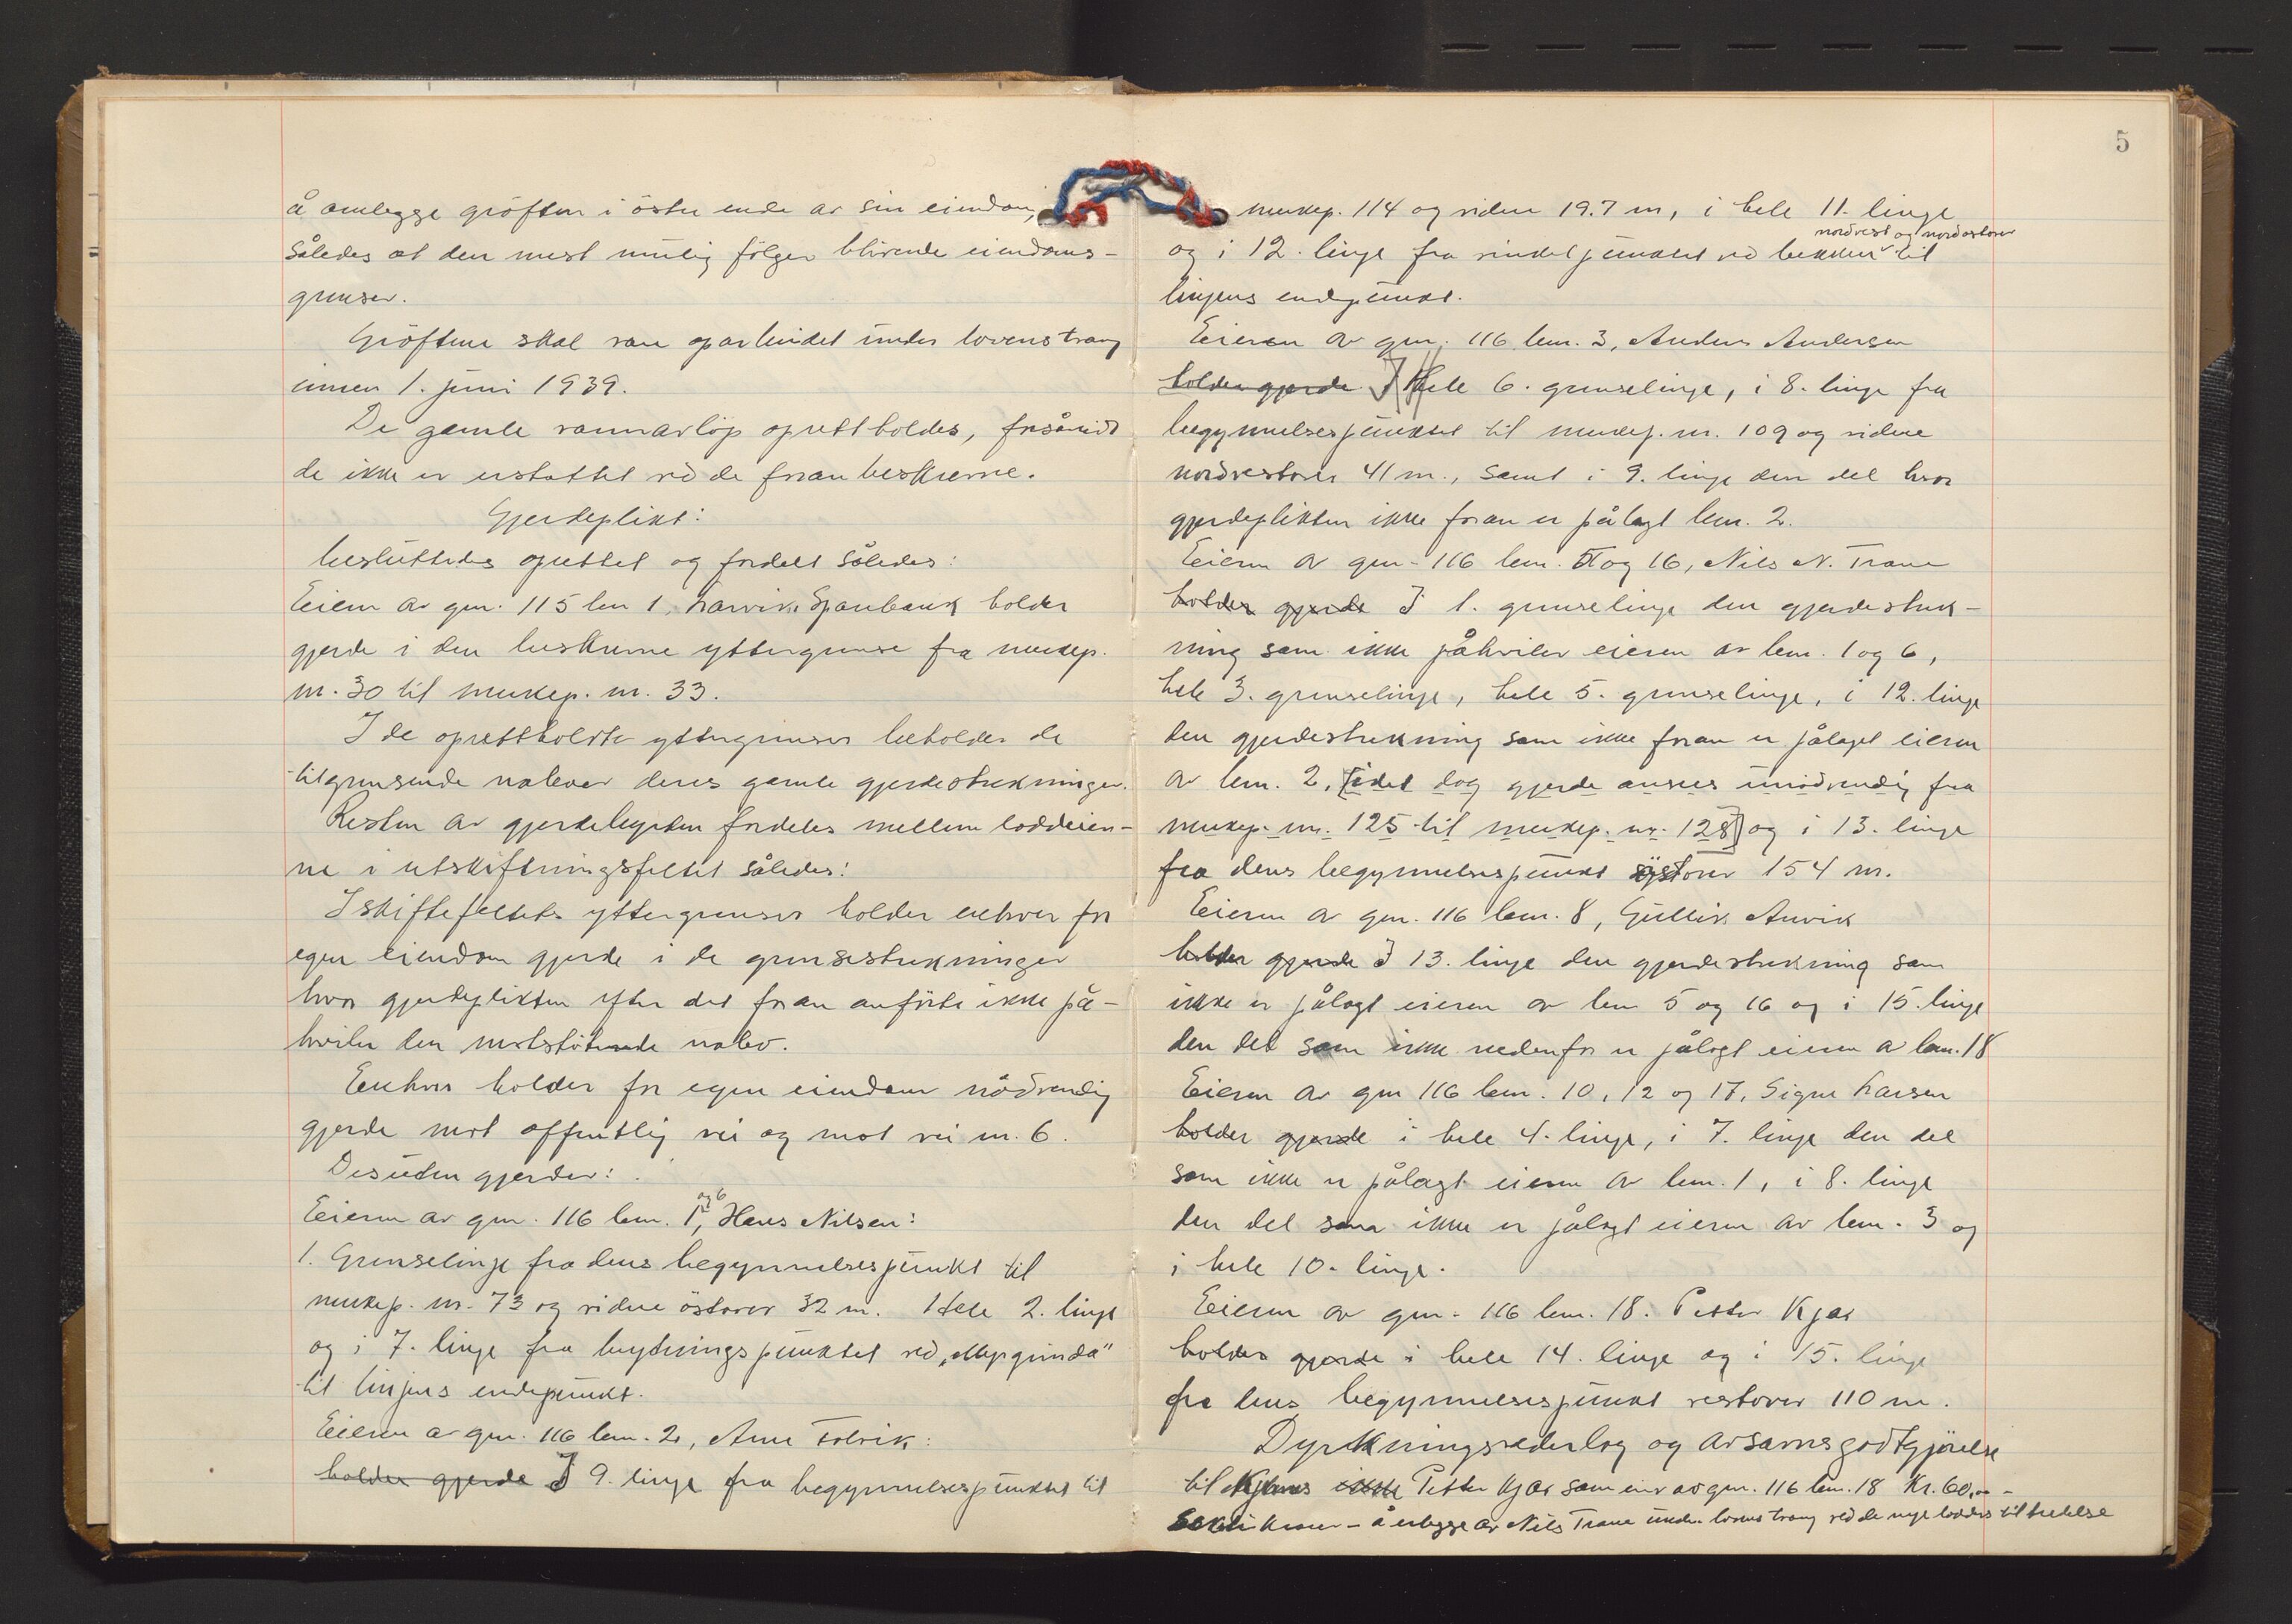 å omlegge gröften i östre ende av sin eiendom,
således at den mest mulig fölger blivende eiendoms-
grenser.
Gröftene skal være oparbeidet under lovens tvang
innen 1. juni 1939.
De gamle vannavlöp oprettholdes, forsåvidt
de ikke er erstattet ved de foran beskrevne.
Gjerdeplikt:
besluttedes oprettet og fordelt således:
Eieren av gnr. 115 bnr 1, Larvik Sparebank holder
gjerde i den beskrevne yttergrense fra merkep.
nr. 30 til merkep. nr. 33.
I de oprettholdte yttergrenser beholder de
tilgrensende naboer deres gamle gjerdestrekninger.
Resten av gjerdebyrden fordeles mellem loddeier-
ne i utskiftningsfeltet således:
I skiftefeltets yttergrenser holder enhver for
egen eiendom gjerde i de grensestrekninger
hvor gjerdeplikten efter det foran anförte ikke på-
hviler den motstötende nabo.
Enhver holder for egen eiendom nödvendig
gjerde mot offentlig vei og mot vei nr. 6.
Desuten gjerder:
Eieren av gnr. 116 bnr. 1 og 6, Hans Nilsen:
1. Grenselinje fra dens begynnelsespunkt til
merkep. nr. 73 og videre östover 32 m. Hele 2. linje
og i 7. linje fra brytningspunktet ved
til linjens endepunkt.
Eieren av gnr. 116 bnr. 2, Arne
holder gjerde I 9. linje fra begynnelsespunktet til
5
merkep. 114 og videre 19.7 m, i hele 11. linje
nordvest og nordostover
og i 12. linje fra vinkelpunktet ved bekken til
linjens endepunkt.
Eieren av gnr. 116 bnr. 3, Anders Andersen
holder gjerde I Hele 6. grenselinje, i 8. linje fra
begynnelsespunktet til merkep. nr. 109 og videre
nordvestover 41 m., samt i 9. linje den del hvor
gjerdeplikten ikke foran er pålagt bnr. 2.
Eieren av gnr. 116 bnr. 5 og 16, Nils N. Trane
holder gjerde I 1. grenselinje den gjerdestrek-
ning som ikke påhviler eieren av bnr. 1 og 6,
hele 3. grenselinje, hele 5. grenselinje, i 12. linje
den gjerdestrekning som ikke foran er pålagt eieren
av bnr. 2, [idet dog gjerde ansees unödvendig fra
merkep. nr. 125 til merkep. nr. 128] og i 13. linje
fra dens begynnelsespunkt 154 m.
Eieren av gnr. 116 bnr. 8, Gullik Anvik
holder gjerde I 13. linje den gjerdestrekning som
ikke er pålagt eieren av bnr 5 og 16 og i 15. linje
den del som ikke nedenfor er pålagt eieren av bnr. 18
Eieren av gnr 116 bnr. 10, 12 og 17, Signe Larsen
holder gjerde i hele 4. linje, i 7. linje den del
som ikke er pålagt eieren av bnr. 1, i 8. linje
den del som ikke er pålagt eieren av bnr. 3 og
i hele 10. linje.
Eieren av gnr. 116 bnr. 18. Petter Kjær
holder gjerde i hele 14. linje og i 15. linje
fra dens begynnelsespunkt vestover 110 m.
Dyrkningsvederlag og avsavnsgodtgjörelse
til Petter Kjær som eier av gnr. 116 bnr. 18 Kr. 60,00 -
Seksti kroner - å erlegge av Nils Trane under lovens tvang ved de nye lodders tiltredelse